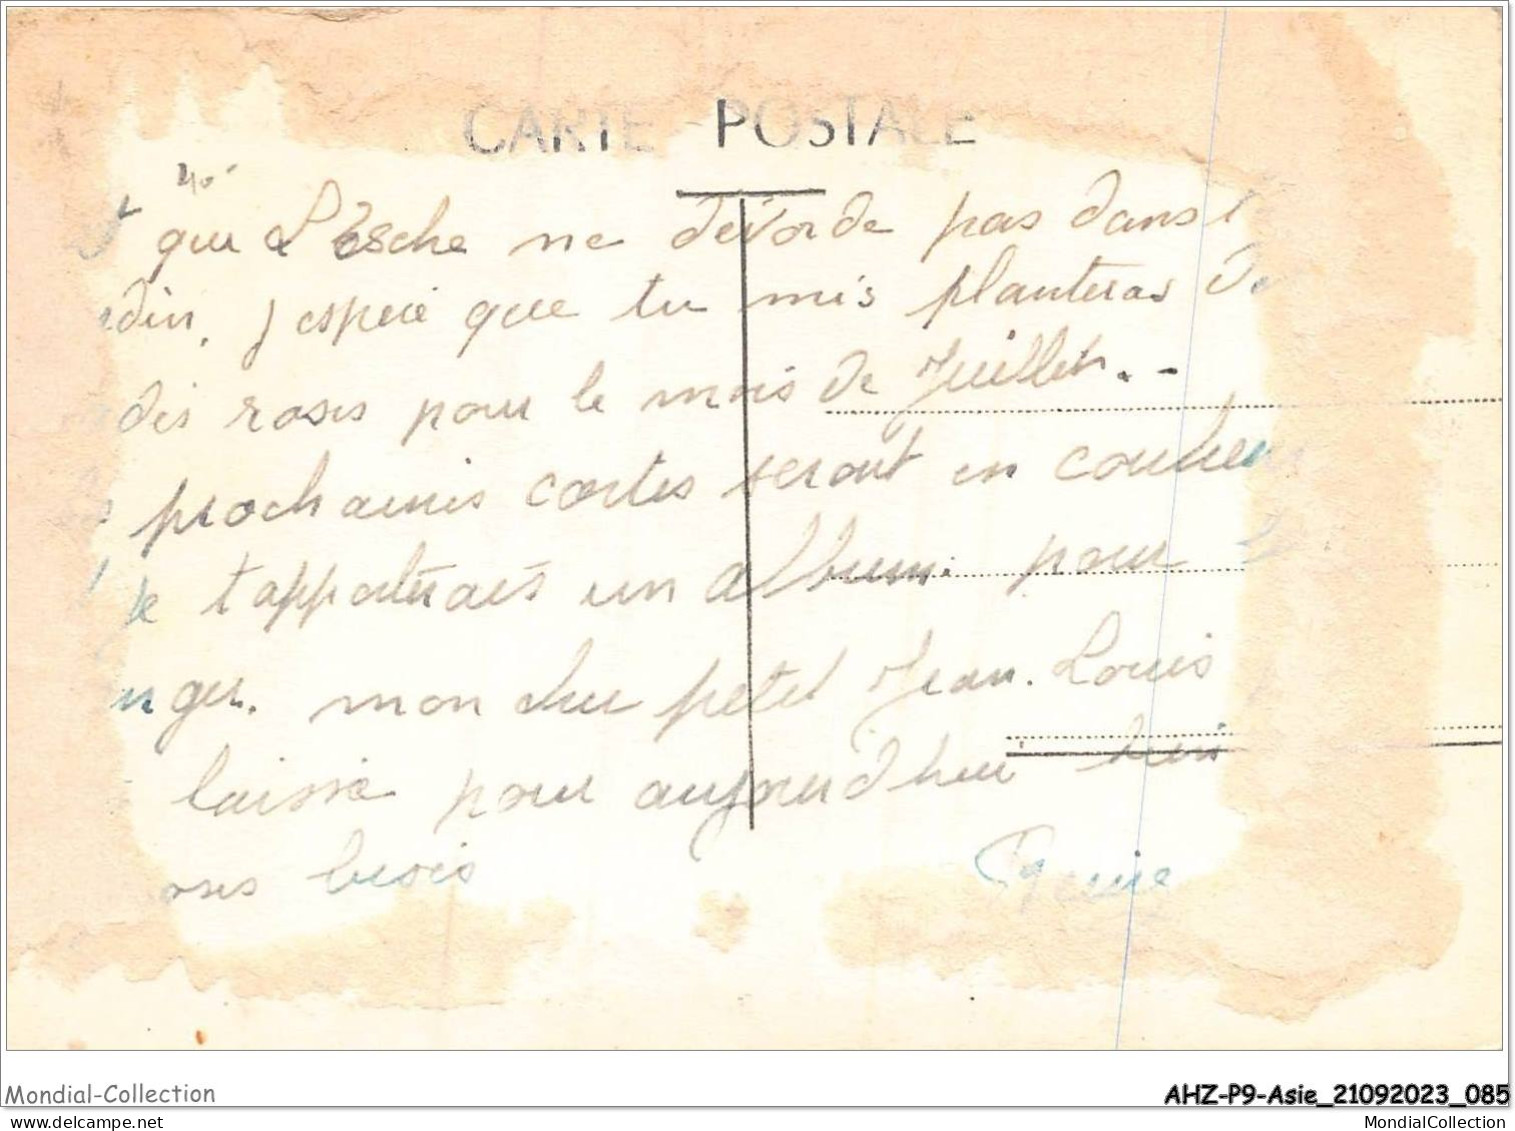 CARTE POSTALE
que L'esche ne dévorde pas dans
din, j'espere que tu mis planteras
des roses pour le mois de Juillet..
prochaines cartes seront en couleur
je t'apporterais un album. pour
nger. mon cher petit Jean. Louis
laisse pour aujourdhui
besois
Mondial-Collection
AHZ-P9-Asie_21092023_085
Mondial-Collection.com
MondialCollection